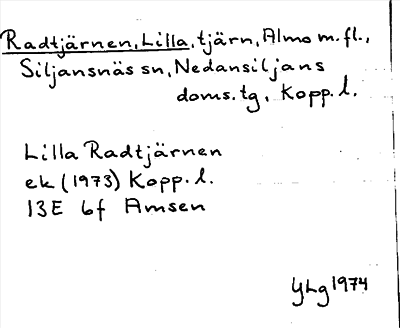 Radtjärnen, Lilla, tjärn, Almo m.fl.,
Siljansnäs sn, Nedansiljans
doms.tg, Kopp. l.
Lilla Radtjärnen
ek (1973) Kopp. l.
13E 6f Amsen
YLg 1974